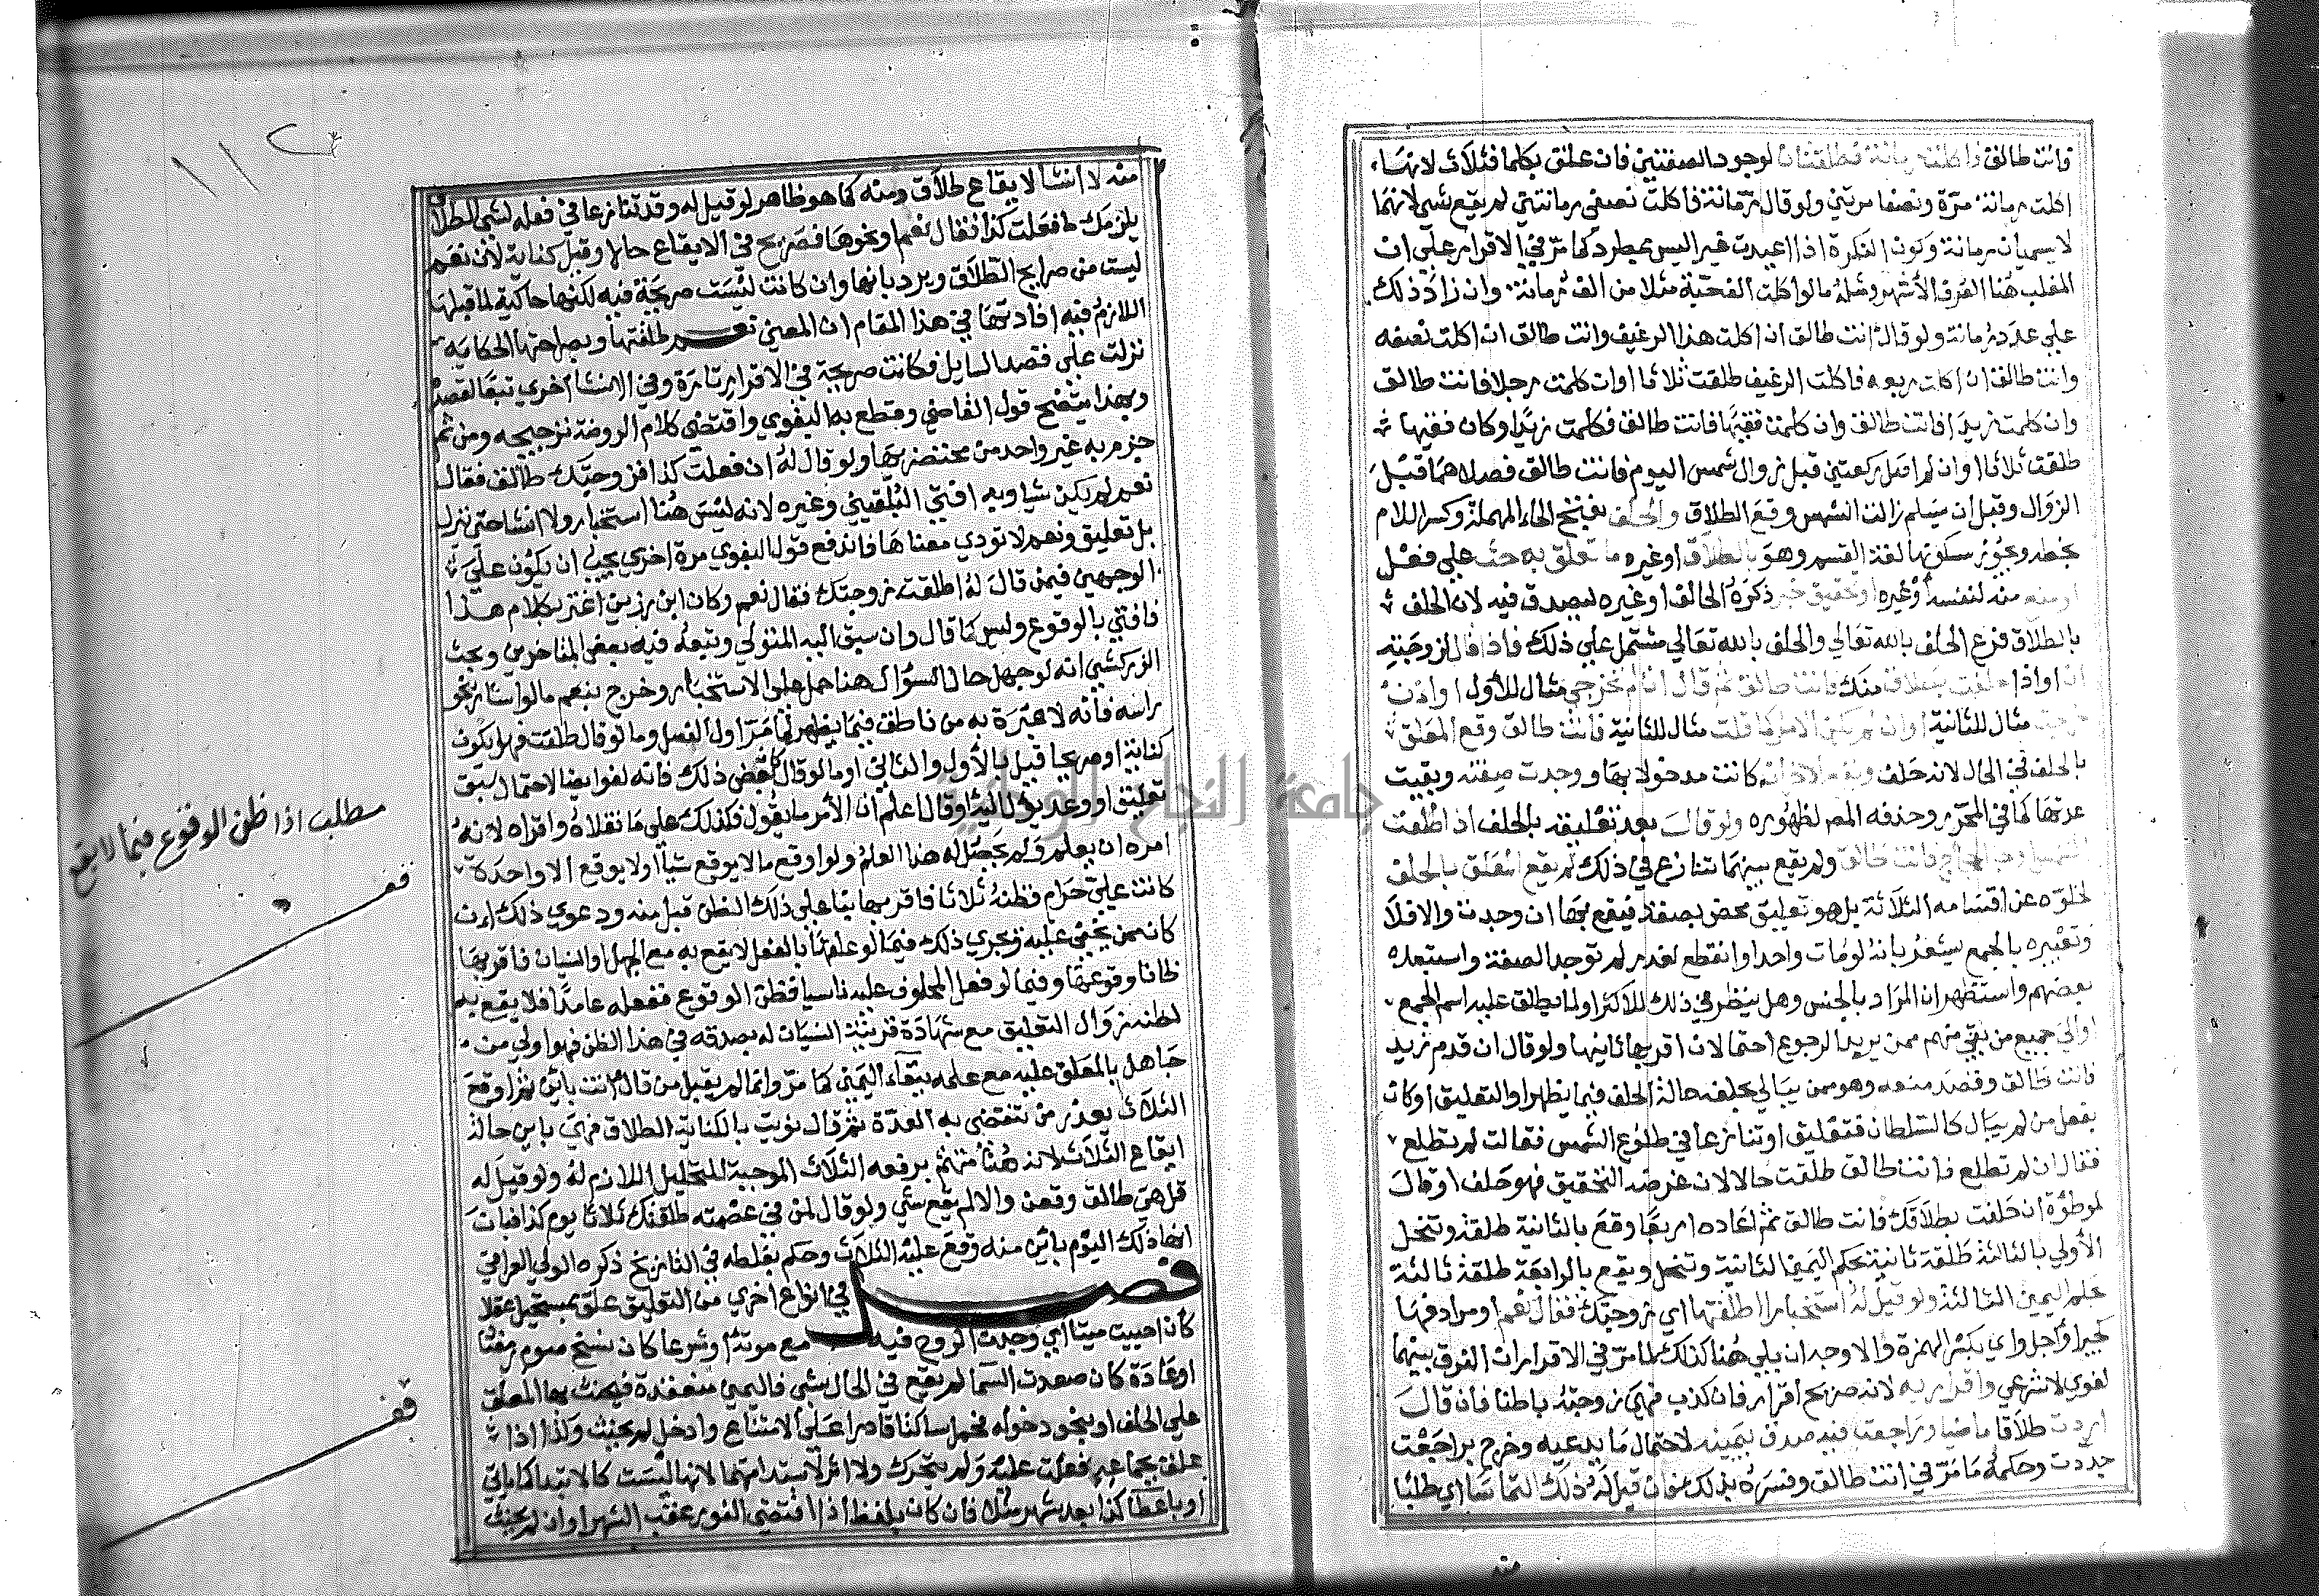 فانت طالق فاكلت رمانة فطلقتان لوجود الصفتين فان علق بكلما فثلاث لانها
اكلت رمانة مرة ونصفا مرتين ولو قال رمانة فاكلت نصفي رمانتين لم يقع شي لانهما
لا يسميان رمانة وكون النكرة اذا اعيدت غير اليس بمطرد كما مر في الاقرار على ان
المغلب هنا العرف الأشهر ومثله ما لو اكلت الفحبة مثلا من الف رمانة وان زاد ذلك
على عدد رمانة ولو قال انت طالق ان اكلت هذا الرغيف وانت طالق ان اكلت نصفه
وانت طالق ان اكلت ربعه فاكلت الرغيف طلقت ثلاثا او ان كلمت رجلا فانت طالق
وان كلمت زيدا فانت طالق وان كلمت فقيها فانت طالق فكلمت زيدا وكان فقيها
طلقت ثلاثا او ان لم اصل ركعتين قبل زوال شمس اليوم فانت طالق فصلاهما قبل
الزوال وقبل ان يسلم زالت الشمس وقع الطلاق والحلف بفتح الحاء المهملة وكسر اللام
بخطه ويجوز سكونها لغة القسم وهو بالطلاق او غيره ما تعلق به حث على فعل
او منع منه لنفسه او غيره او تحقيق خبر ذكره الحالف او غيره ليصدق فيه لان الحلف
بالطلاق فرع الحلف بالله تعالي والحلف بالله تعالي مشتمل على ذلك فاذا قال لزوجته
ان او اذا حلفت بطلاق منك فانت طالق ثم قال ان لم تخرجي مثال للأول او ان
خرجت مثال للثانية او ان لم يكن الامر كما قلت مثال للثانية فانت طالق وقع المعلق
بالحلف في الحال لانه حلف ويقع الاخر ان كانت مدخولا بها ووجدت صفته وبقيت
عدتها كما في المحرر وحذفه المص لظهوره ولو قال بعد تعليقه بالحلف اذا طلعت
الشمس او جا الحجاج فانت طالق ولم يقع بينهما تنازع في ذلك لم يقع المعلق بالحلف
لخلوه عن اقسامه الثلاثة بل هو تعليق محض بصفة فيقع بها ان وجدت والا فلا
وتعبيره بالجمع يشعر بانه لو مات واحد او انقطع لعذر لم توجد الصفة واستبعده
بعضهم واستظهر ان المراد بالجنس وهل ينظر في ذلك للأكثر او لما يطلق عليه اسم الجمع
او الي جميع من بقي منهم ممن يريد الرجوع احتمالان اقربها ثانيها ولو قال ان قدم زيد
فانت طالق وقصد منعه وهو ممن يبالي بحلفه حالة الحلف فيما يظهر او التعليق او كان
بفعل من لم يبال كالسلطان فتعليق او تنازعا في طلوع الشمس فقالت لم تطلع
فقال ان لم تطلع فانت طالق طلقت حالا لان غرضه التحقيق فهو حلف او قال
لموطؤة ان حلفت بطلاقك فانت طالق ثم اعاده اربعا وقع بالثانية طلقة وتنحل
الأولي بالثالثة طلقة ثانية بحكم اليمين الثانية وتنحل ويقع بالرابعة طلقة ثالثة
بحكم اليمين الثالثة ولو قيل له استخبارا اطلقتها اي زوجتك فقال نعم او مرادفها
كجير واجل واي بكسر الهمزة والاوجه ان بلي هنا كذلك لما مر في الاقرار ان الفرق بينهما
لغوي لا شرعي واقرار به لانه صريح اقرار فان كذب فهي زوجته باطنا فان قال
اردت طلاقا ماضيا وراجعت فيه صدق بيمينه لاحتمال ما يدعيه وخرج براجعت
جددت وحكمه ما مر في انت طالق وفسره بذلك فان قيل له ذلك التماسا اي طلبا
منه
منه لا انشا لايقاع طلاق ومنه كما هو ظاهر لو قيل له وقد تنازعا في فعله لشي الطلاق
يلزمك ما فعلت كذا فقال نعم او نحوها فصريح في الايقاع حالا وقيل كناية لأن نعم
ليست من صرايح الطلاق ويرد بانها وان كانت ليست صريحة فيه لكنها حاكية لما قبلها
اللازم فيه افادتها في هذا المقام ان المعني نعم طلقتها وبصراحتها الحكاية
نزلت على قصد السايل فكانت صريحة في الاقرار تارة وفي الانشا اخري تبعا لقصده
وبهذا يتضح قول القاضي وقطع به البغوي واقتضى كلام الروضة ترجيحه ومن ثم
جزم به غير واحد من مختصريها ولو قال له ان فعلت كذا فزوجتك طالق فقال
نعم لم يكن شيا وبه افتي البلقيني وغيره لانه ليس هنا استخبار ولا انشا حتى ننزل
بل تعليق ونعم لا تودي معناها فاندفع قول البغوي مرة اخري يجب ان يكون على
الوجهين فيمن قال له اطلقت زوجتك فقال نعم وكان ابن رزين اغتر بكلام هذا
فافتي بالوقوع وليس كما قال وان سبق اليه المتولي وتبعه فيه بعض المتاخرين وبحث
الزركشي انه لو جهل حال السؤال هنا حمل على الاستخبار وخرج بنعم ما لو اشار بنحو
راسه فانه لا عبرة به من ناطق فيما يظهر لما مر اول الفصل وما لو قال طلقت فهل يكون
كناية او صريحا قيل بالأول والثاني او ما لو قال كان بعض ذلك فانه لغو ايضا لاحتمال سبق
تعليق او وعد يؤل اليه او قال اعلم ان الأمر ما يقول فكذلك على ما نقلاه واقراه لأنه
امره ان يعلم ولم يحصل له هذا العلم ولو اوقع ما لا يوقع شيأ او لا يوقع الا واحدة
كانت علي حرام فظنه ثلاثا فاقر بها بنا على ذلك الظن قبل منه ودعوي ذلك ان
كان ممن يخفى عليه ويجري ذلك فيما لو علق ثنا بالفعل لا يقع به مع الجهل او النسيان فاقر بها
ظانا وقوعها وفيما لو فعل المحلوف عليه ناسيا فظن الوقوع ففعله عامدا فلا يقع به
لظنه زوال التعليق مع شهادة قرينة النسيان له بصدقه في هذا الظن فهو اولي من
جاهل بالمعلق عليه مع علمه ببقاء اليمين كما مر وانما لم يقبل من قال انت باين ثم اوقع
الثلاث بعد زمن تنقضي به العدة ثم قال نويت بالكناية الطلاق فهي باين حالة
ايقاع الثلاث لانه هنا متهم برفعه الثلاث الموجبة للتحليل اللازم له ولو قيل له
قل هي طالق وقعن والا لم يقع شي ولو قال لمن في عصمته طلقتك ثلاثا يوم كذا فبان
انها ذلك اليوم باين منه وقع عليه الثلاث وحكم بغلطه في التاريخ ذكره الولي العراقي
فصل في انواع اخري من التعليق علق بمستحيل عقلا
كان احييت ميتا اي وجدت الروح فيه مع موته او شرعا كان نسخ صوم رمضان
او عادة كان صعدت السما لم يقع في الحال شي فاليمين منعقدة فيحنث بها المعلق
على الحلف او بنحو دخوله فحمل ساكنا قادرا على الامتناع وادخل لم يحنث وكذا اذا
علق بجماعه فعلت عليه ولم يتحرك ولا اثر لاستدامتهما لانها ليست كالابتدا كما ياتي
او باعطا كذا بعد شهر مثلا فان كان بلفظ اذا اقتضي الفور عقب الشهر او ان لم يحنث
مطلب اذا ظن الوقوع فيما لا يقع
قف
قف
جامعة النجاح الوطنية